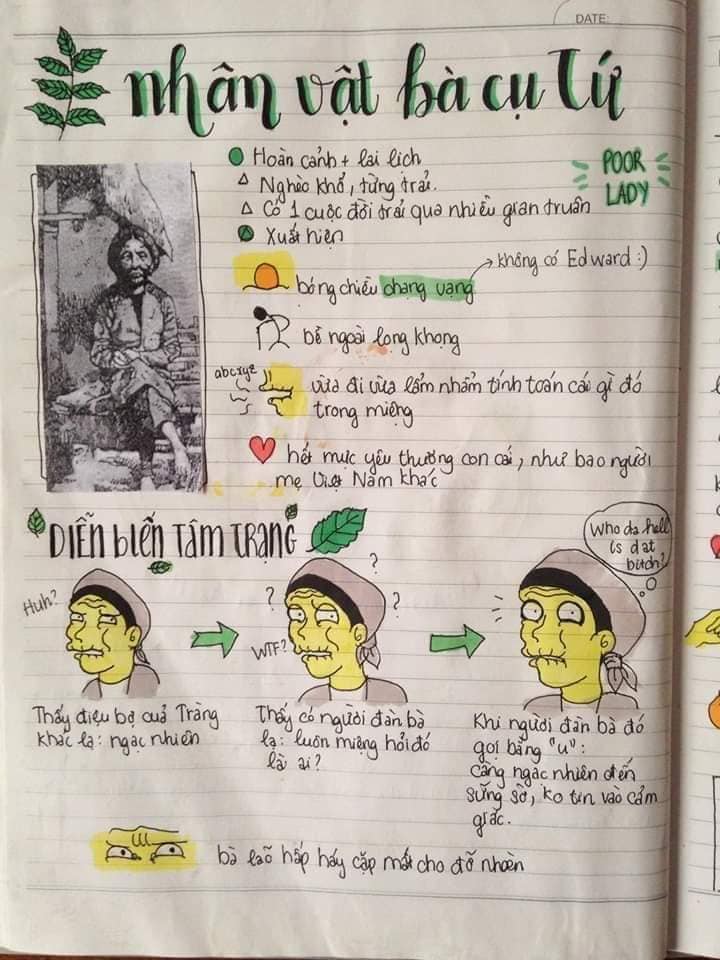 DATE:
nhân vật bà cụ Tứ
Hoàn cảnh + lai lịch
POOR
LADY
Nghèo khổ, từng trải.
Có 1 cuộc đời trải qua nhiều gian truân
Xuất hiện
không có Edward :)
bóng chiều chạng vạng
bề ngoài lọng khọng
abcxyz
vừa đi vừa lẩm nhẩm tính toán cái gì đó
trong miệng
hết mực yêu thương con cái, như bao người
mẹ Việt Nam khác
DIỄN biến TÂM TRẠNG
Huh?
?
?
?
WTF?
Who da hell
is dat
bitch?
Thấy điệu bộ của Tràng
khác lạ: ngạc nhiên
Thấy có người đàn bà
lạ: luôn miệng hỏi đó
là ai?
Khi người đàn bà đó
gọi bằng "u":
càng ngạc nhiên đến
sững sờ, ko tin vào cảm
giác.
bà lão hấp háy cặp mắt cho đỡ nhoèn